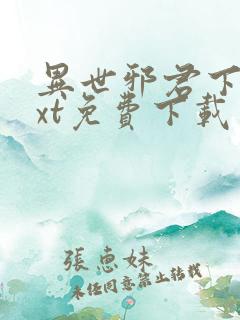 異世邪君下
xt免費下載
張惠妹
未经同意禁止转载